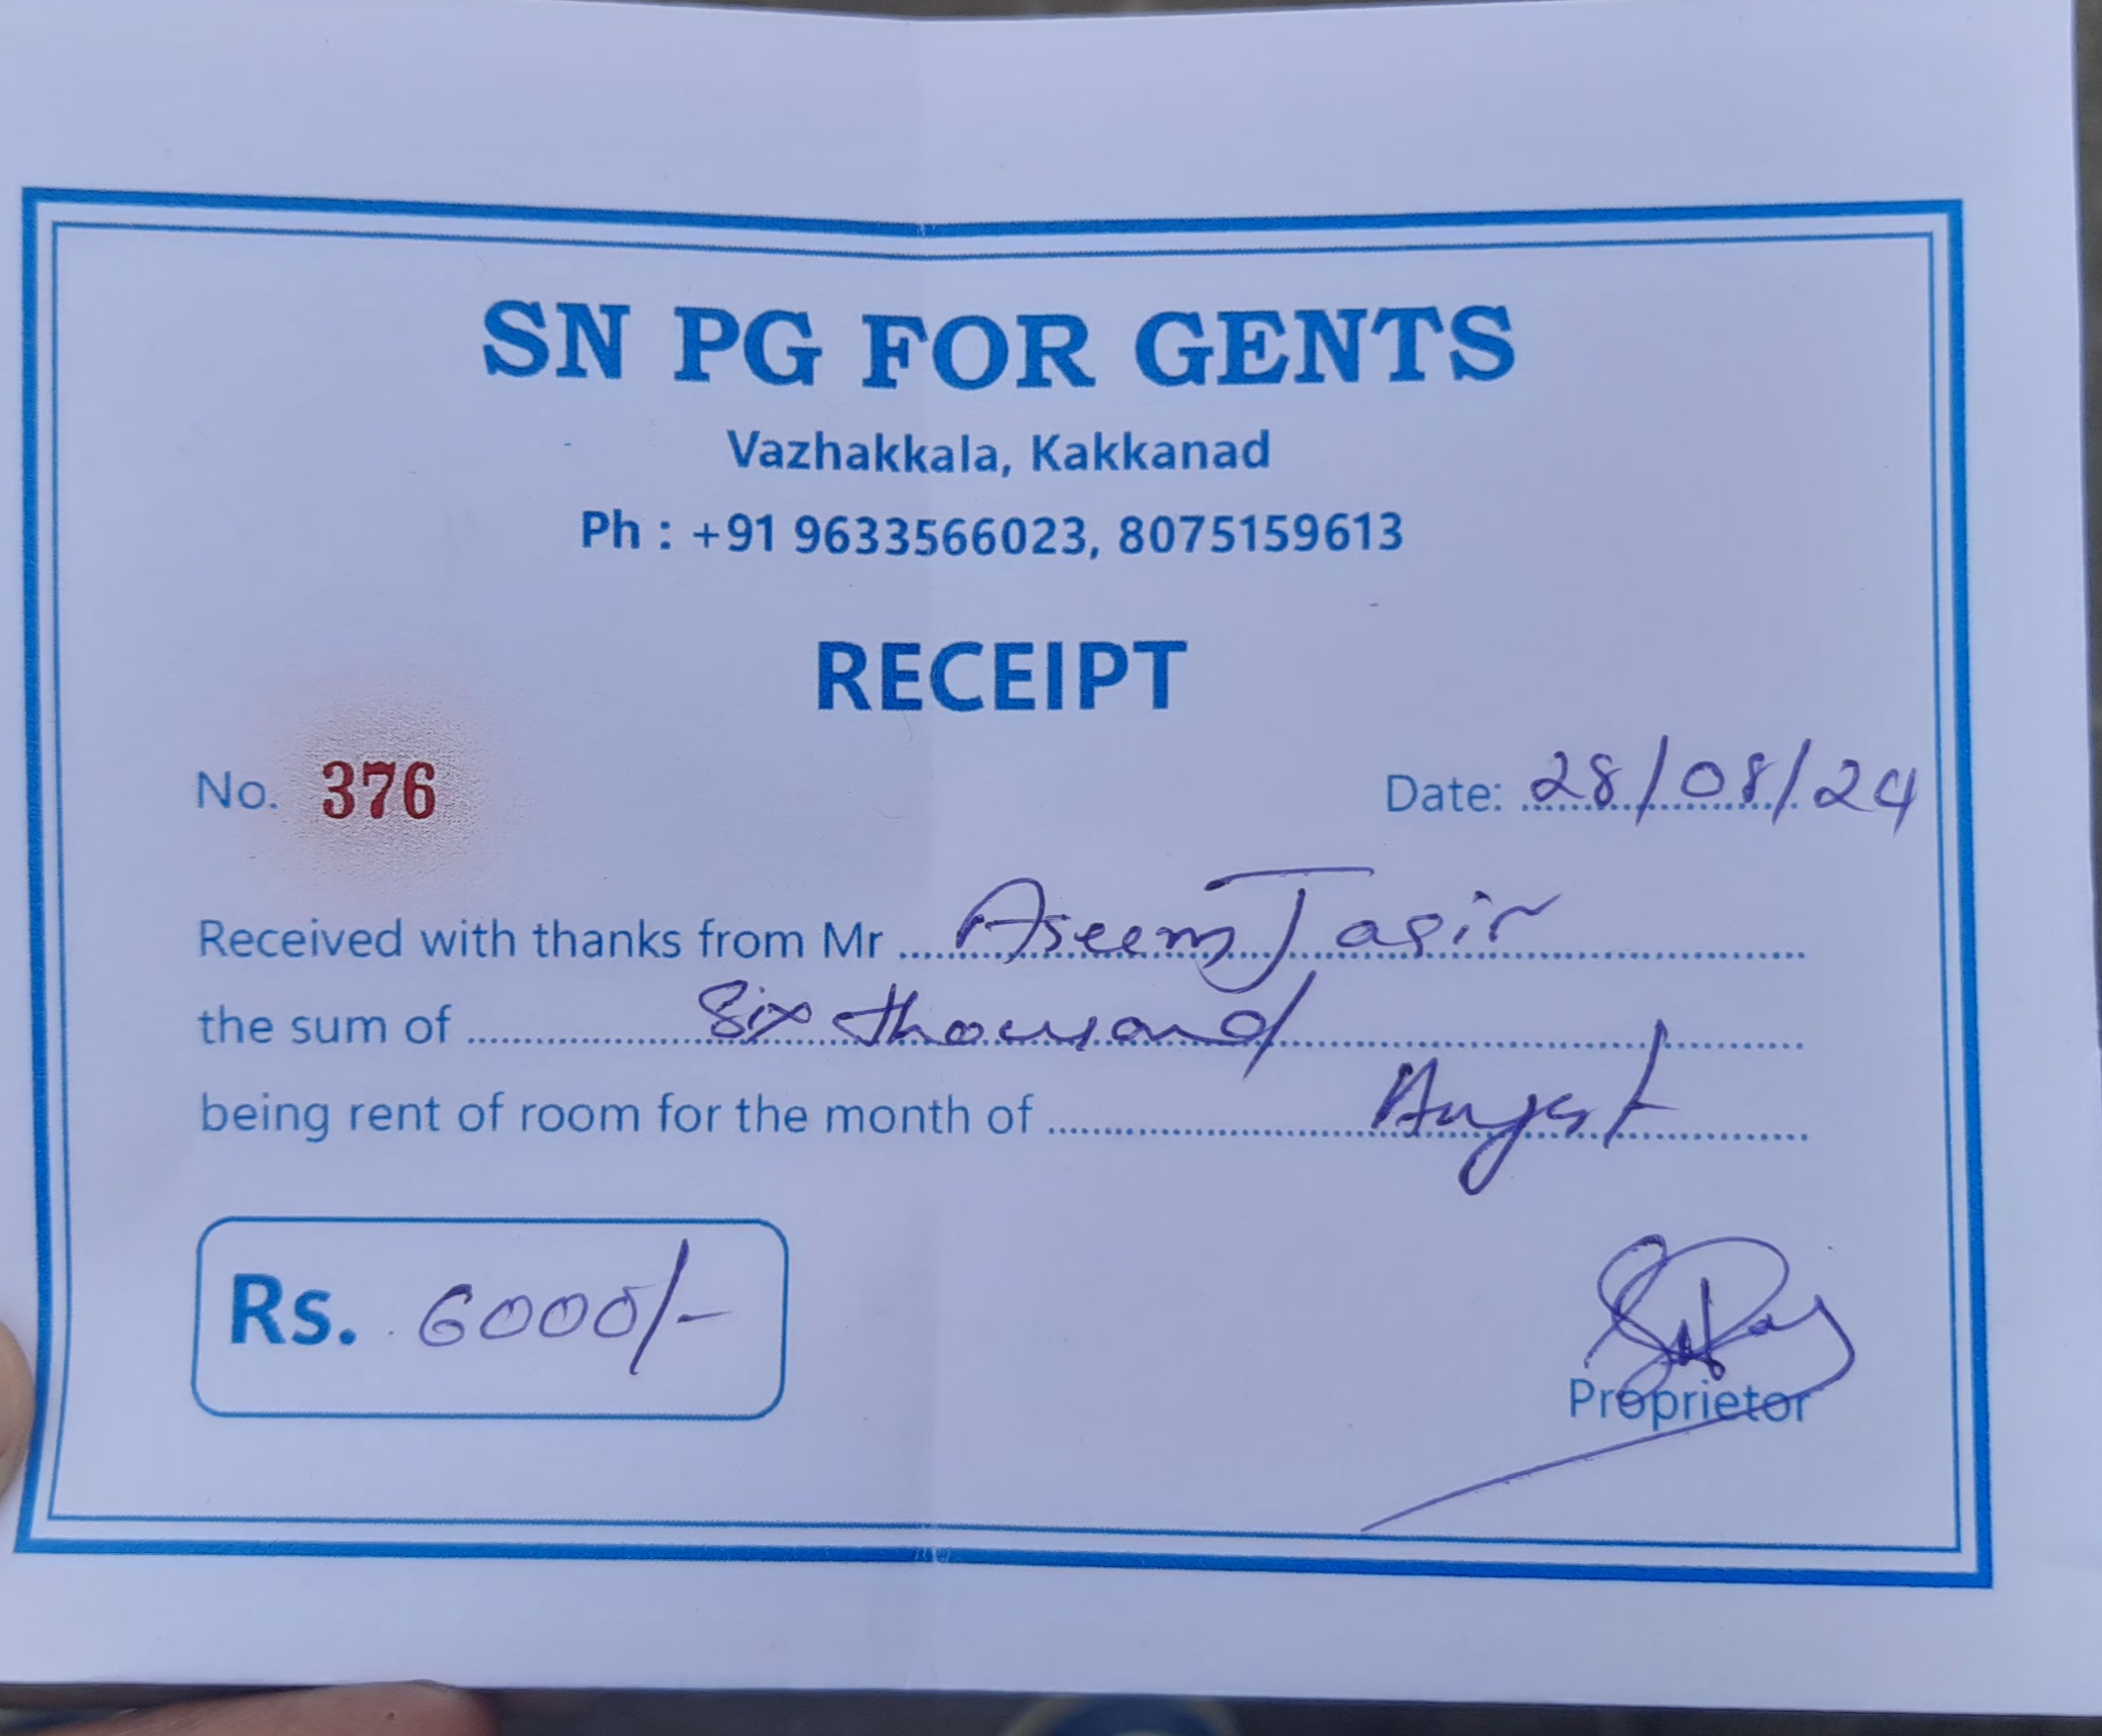 SN PG FOR GENTS
Vazhakkala, Kakkanad
Ph : +91 9633566023, 8075159613
RECEIPT
No. 376 Date: 28/08/24
Received with thanks from Mr Aseem Jasir
the sum of Six thousand
being rent of room for the month of August
Rs. 6000/-
Proprietor